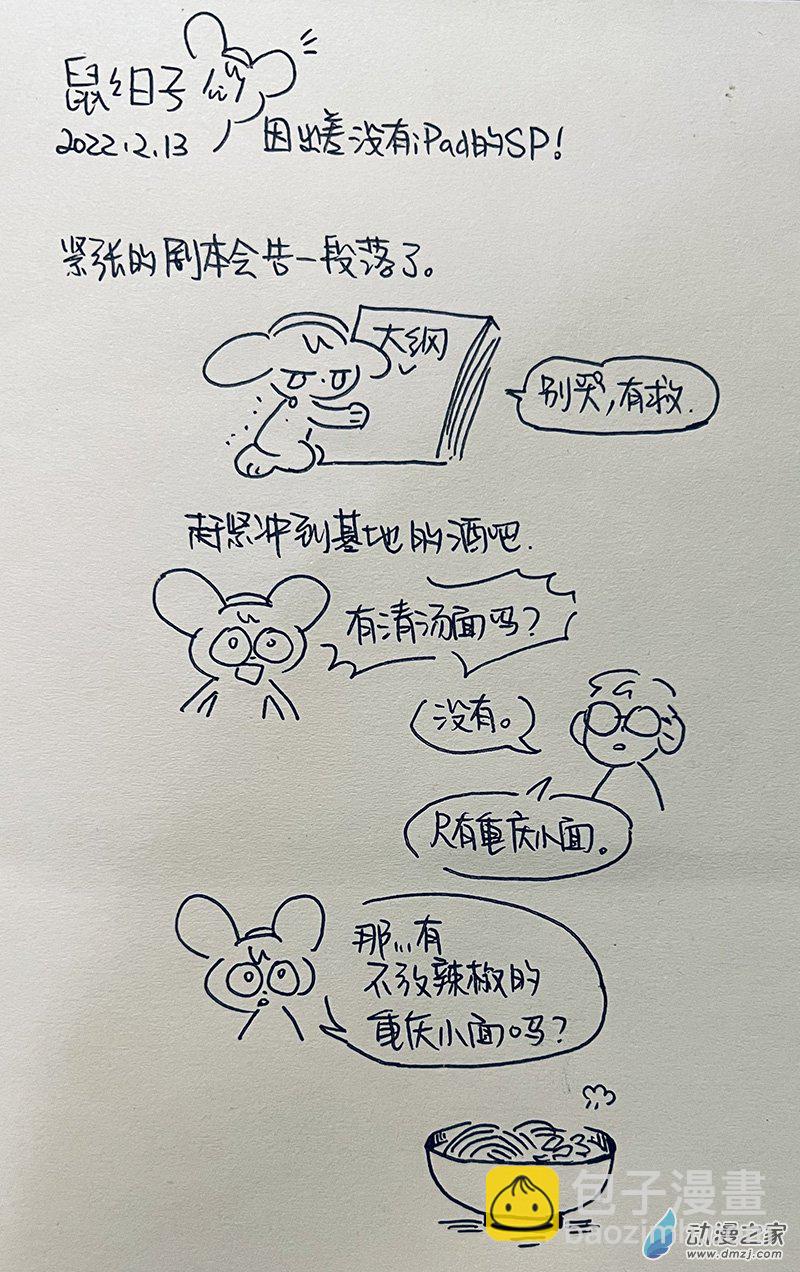 鼠绘日子
2022.2.13
因出差没有iPad的SP!
紧张的剧本会告一段落了。
大纲
别哭,有救.
赶紧冲到基地的酒吧.
有清汤面吗?
没有。
只有重庆小面。
那...有
不放辣椒的
重庆小面吗?
包子漫畫
动漫之家
www.dmzj.com